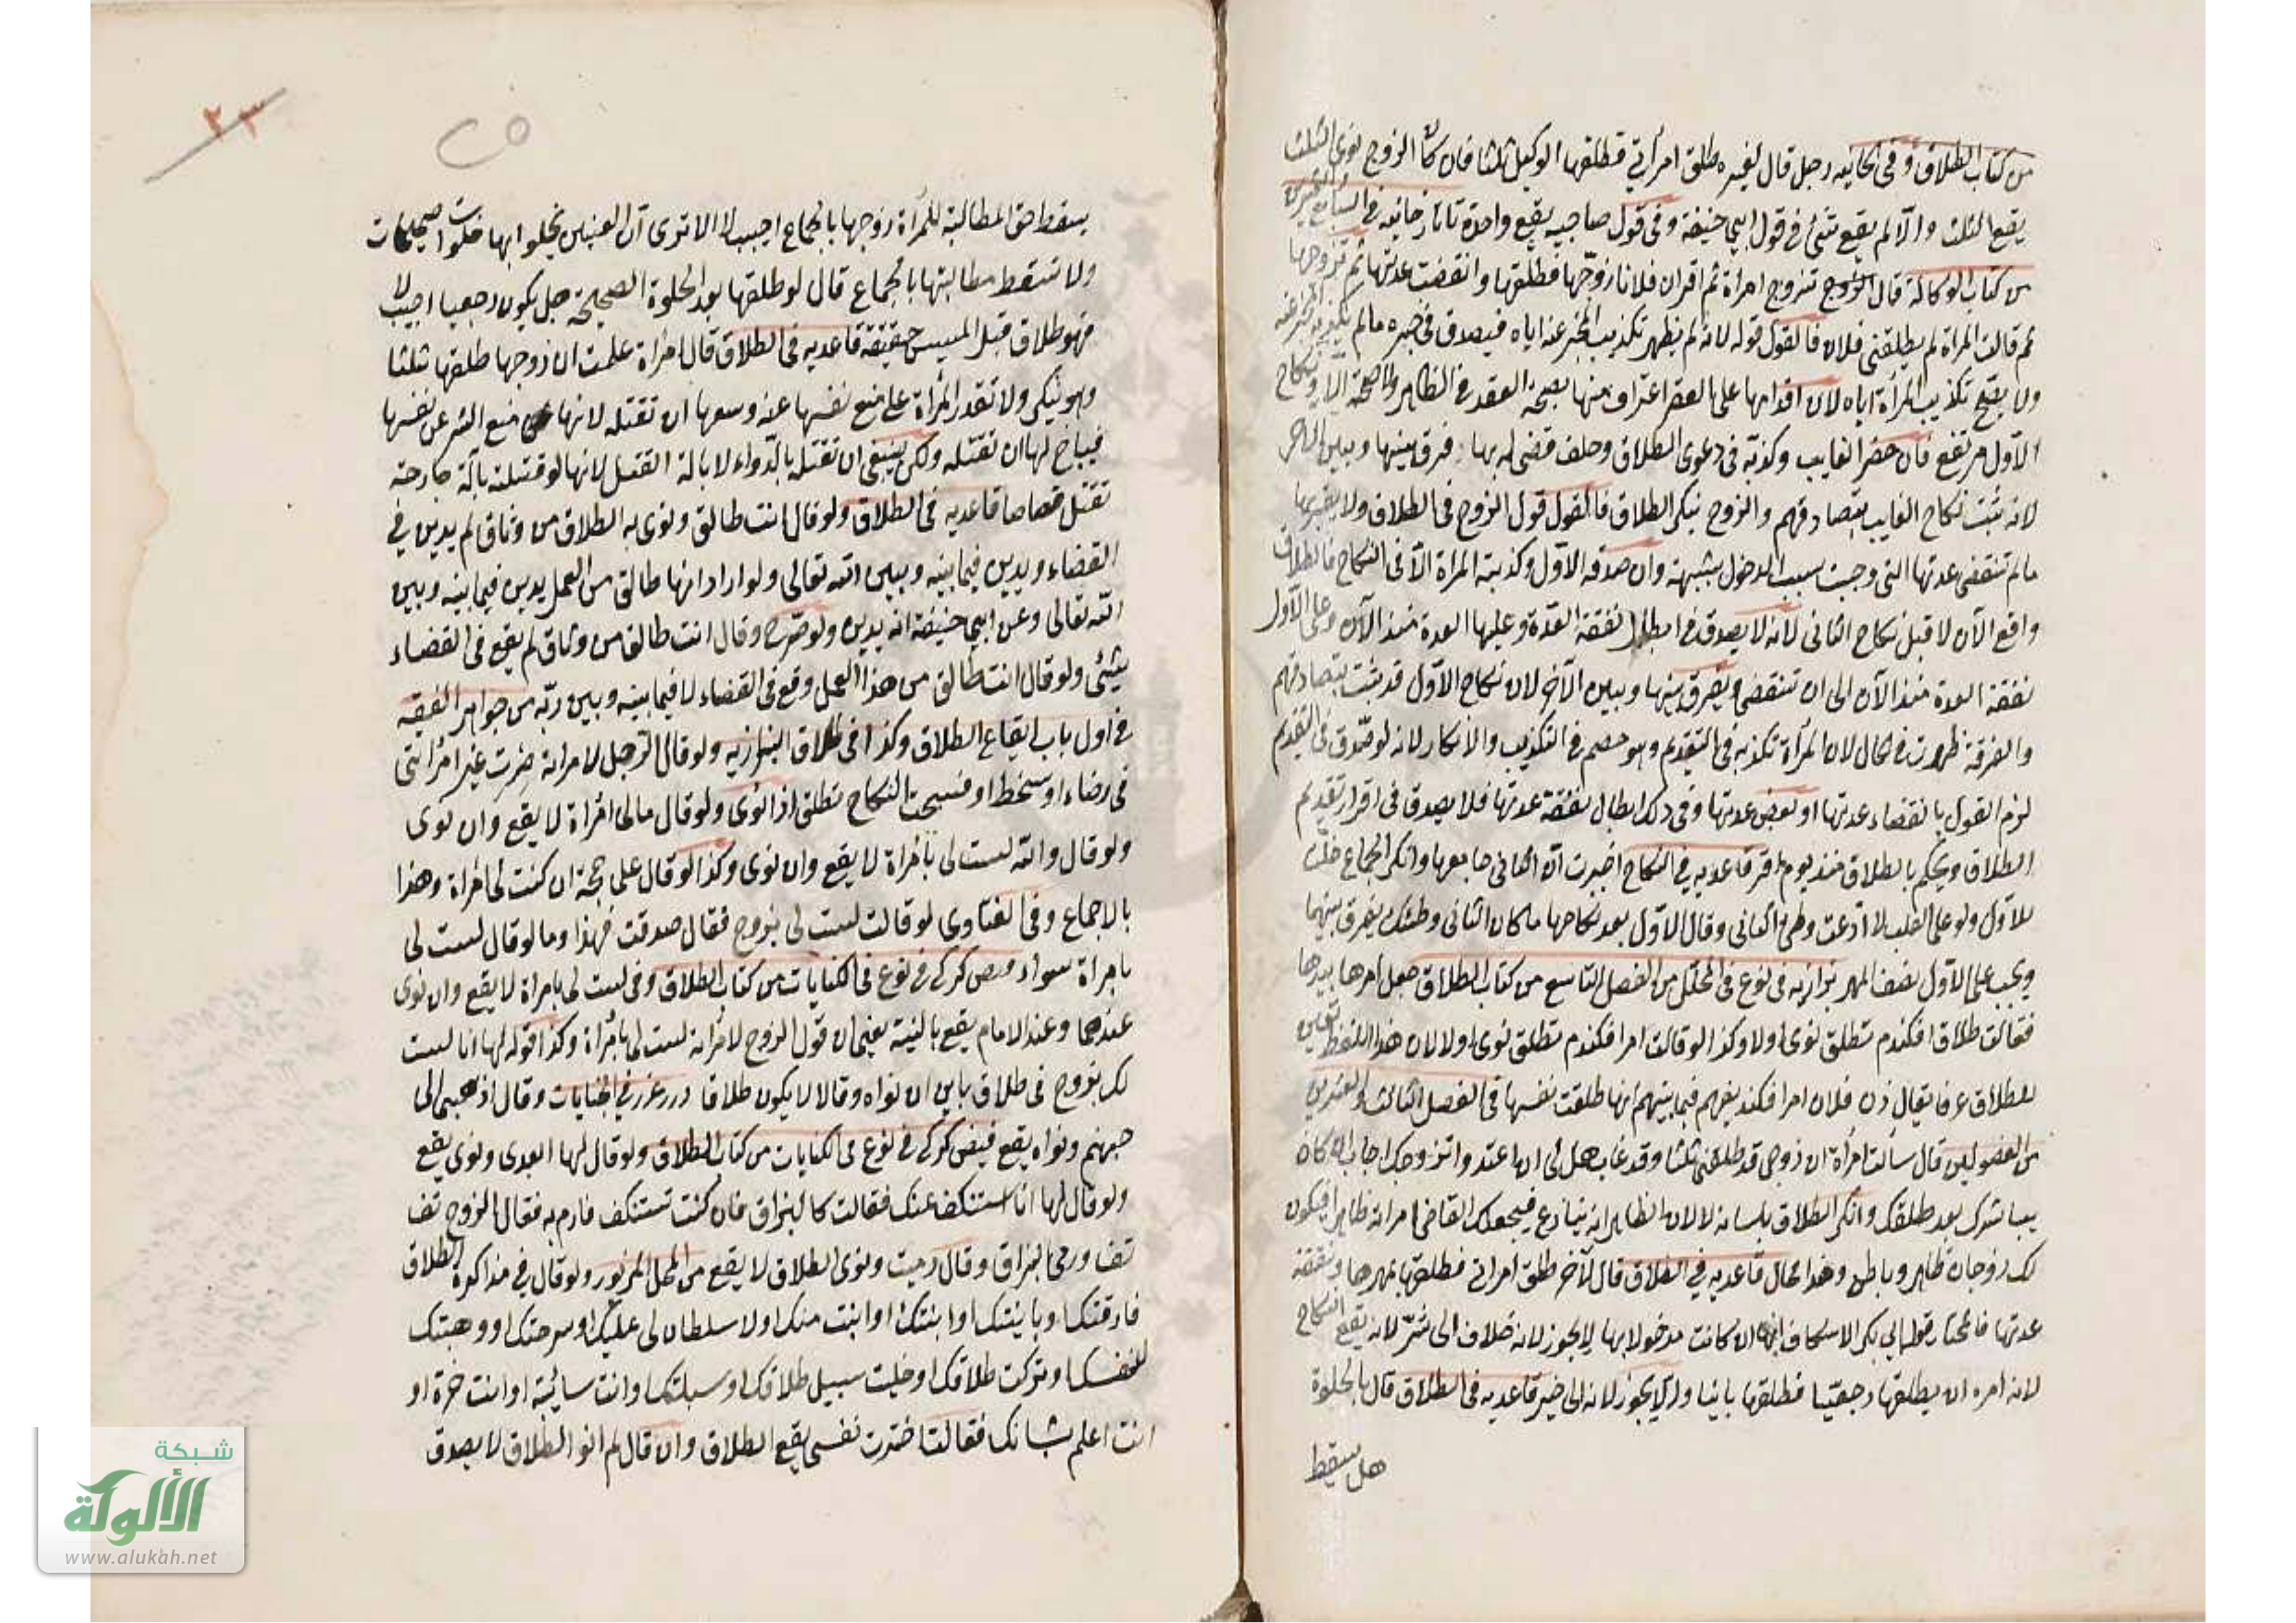 من كتاب الطلاق وفى الخانيه رجل قال لغيره طلق امرأتي فطلقها الوكيل ثلثا فان كان الزوج نوى الثلث
يقع الثلث والا لم يقع شئ في قول ابي حنيفة وفى قول صاحبيه يقع واحدة تاتارخانيه فى السابع والعشرين
من كتاب الوكالة قال تزوج امرأة ثم اقر ان فلانا زوجها فطلقها وانقضت عدتها ثم تزوجها
ثم قالت المرأة لم يطلقنى فلان فالقول قوله لانه لم يظهر تكذيب المخبر عنه اياه فيصدق فى خبره مالم يكذبه المخبر عنه
ولا يقبح تكذيب المرأة اياه لان اقدامها على العقد اعتراف منها بصحة العقد فى الظاهر ولا صحة الا ونكاح
الاول مرتفع فان حضر الغايب وكذبه فى دعوى الطلاق وحلف قضى له بها وفرق بينها وبين الاخر
لانه ثبت نكاح الغايب بتصادقهم والزوج ينكر الطلاق فالقول قول الزوج فى الطلاق ولا يقربها
مالم تنقضى عدتها التى وجبت بسبب الدخول بشبهة وان صدقه الاول وكذبته المراة الآ فى النكاح فالطلاق
واقع الآن لا قبل نكاح الثانى لانه لا يصدق فى ابطال نفقة العدة وعليها العدة منذ الآن وعلى الاول
نفقة العدة منذ الآن الى ان تنقضى ويفرق بينها وبين الآخر لان نكاح الاول قد يثبت بتصادقهم
والفرقة ظهرت فى الحال لان المرأة تكذبه فى التقديم وهو خصم فى التكذيب والانكار لانه لو صدق فى التقديم
لزم القول بانقضاء عدتها او بعض عدتها وفى ذلك ابطال نفقة عدتها فلا يصدق فى اقرار تقديم
الطلاق ويحكم بالطلاق منذ يوم اقر قاعديه فى النكاح اخبرت ان الثانى جامعها وانكر الجماع حلت
للاول ولو على القلب لا ادعت وطئ الثانى وقال الاول بعد نكاحها ما كان الثانى وطئك يفرق بينهما
ويجب على الاول نصف المهر بزازيه فى نوع فى المحلل من الفصل التاسع من كتاب الطلاق جعل امرها بيدها
فقالت طلاق افكندم تطلق نوى اولا وكذا لو قالت امر افكندم تطلق نوى اولا لان هذا اللفظ تعين
للطلاق عرفا يقال زن فلان امر افكند يفهم فيما بينهم انها طلقت نفسها فى الفصل الثالث والعشرين
من الفصولين قال سألت امرأة ان زوجى قد طلقنى ثلثا وقد غاب هل لى ان اعتد واتزوجك اجاب ان كان
يباشرك بعد طلقك وانكر الطلاق بلسانه لا لان الظاهر انه ينازع فيجعلك القاضى امرأته ظاهرا فيكون
لك زوجان ظاهر وباطن وهذا محال قاعديه فى الطلاق قال لآخر طلق امرأتى فطلقها بمهرها ونفقة
عدتها فالمختار قول ابي بكر الاسكاف انه ان كانت مدخولا بها لا يجوز لانه خلاف الى شر لانه يقع النكاح
لانه امره ان يطلقها رجعيا فطلقها باينا والا يجوز لانه الى خير قاعديه فى الطلاق قال بالخلوة
هل يسقط
يسقط حق المطالبة للمرأة زوجها بالجماع اجيب لا الا ترى أن العنين يخلوا بها خلوات صحيحات
ولا تسقط مطالبتها بالجماع قال لو طلقها بعد الخلوة الصحيحة هل يكون رجعيا اجيب لا
فهو طلاق قبل المسيس حقيقة قاعديه فى الطلاق قال امرأة علمت ان زوجها طلقها ثلثا
وهو ينكر ولا تقدر المرأة على منع نفسها عنه وسعها ان تقتله لانها منع الشر عن نفسها
فيباح لها ان تقتله ولكن ينبغى ان تقتله بالدواء لا بآلة القتل لانها لو قتلته بآلة جارحة
تقتل قصاصا قاعديه فى الطلاق ولو قال انت طالق ونوى به الطلاق من وثاق لم يدين في
القضاء ويدين فيما بينه وبين الله تعالى ولو اراد انها طالق من العمل يدين فيما بينه وبين
الله تعالى وعن ابي حنيفة انه يدين ولو صرح وقال انت طالق من وثاق لم يقع فى القضاء
شئ ولو قال انت طالق من هذا العمل وقع فى القضاء لا فيما بينه وبين ربه من جواهر الفقه
فى اول باب ايقاع الطلاق وكذا فى طلاق البزازيه ولو قال الرجل لامراته صرت غير امرأتى
فى رضاء او سخط او فسخت النكاح تطلق اذا نوى ولو قال مالى امرأة لا يقع وان نوى
ولو قال والله لست لى بامرأة لا يقع وان نوى وكذا لو قال على حجة ان كنت لى امرأة وهذا
بالاجماع وفى الفتاوى لو قالت لست لى بزوج فقال صدقت فهذا وما لو قال لست لى
بامراة سواء فيض كركى فى نوع فى الكنايات من كتاب الطلاق وفى لست لى بامراة لا يقع وان نوى
عندهما وعند الامام يقع بالنية يعنى ان قول الزوج لامرأته لست لى بامرأة وكذا قوله لها انا لست
لك بزوج فى طلاق باين ان نواه وقالا لا يكون طلاقا درر غرر فى الكنايات وقال اذهبى الى
جهنم ونواه يقع فيض كركى فى نوع فى الكنايات من كتاب الطلاق ولو قال لها ابعدى ونوى يقع
ولو قال لها انا استنكف عنك فقالت كالبزاق فان كنت تستنكف فارم به فقال الزوج تف
تف ورمى البزاق وقال رميت ونوى الطلاق لا يقع من المحل المزبور ولو قال فى مذاكرة الطلاق
فارقتك او باينتك او ابنتك او ابنت منك او لا سلطان لى عليك او سرحتك او وهبتك
لنفسك او تركت طلاقك او خليت سبيل طلاقك او سبيلك او انت سائبة او انت حرة او
انت اعلم بشانك فقالت اخترت نفسى يقع الطلاق وان قال لم انو الطلاق لا يصدق
٢٣
شبكة
الألوكة
www.alukah.net